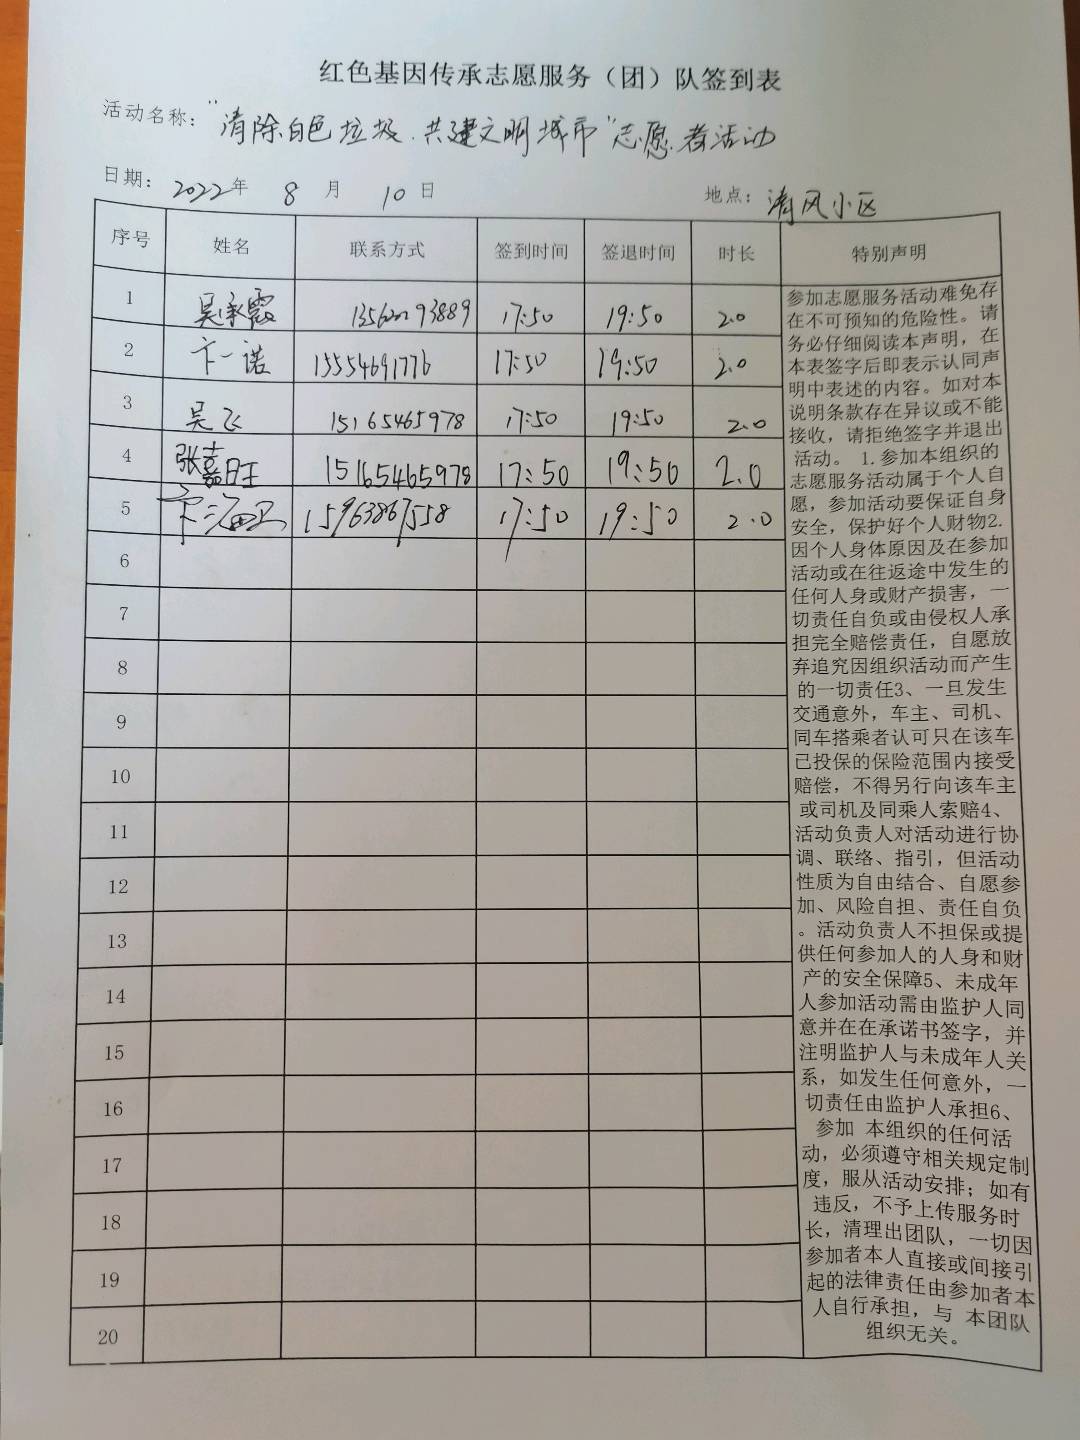 红色基因传承志愿服务（团）队签到表
活动名称：“清除白色垃圾.共建文明城市”志愿者活动
日期：2022年 8 月 10 日 地点：清风小区
序号 姓名 联系方式 签到时间 签退时间 时长 特别声明
1 吴承霞 17:50 19:50 2.0
2 卞一诺 15554691776 17:50 19:50 2.0
3 吴飞 15165465978 17:50 19:50 2.0
4 张嘉旺 15165465978 17:50 19:50 2.0
5 15963867558 17:50 19:50 2.0
6
7
8
9
10
11
12
13
14
15
16
17
18
19
20
参加志愿服务活动难免存
在不可预知的危险性。请
务必仔细阅读本声明，在
本表签字后即表示认同声
明中表述的内容。如对本
说明条款存在异议或不能
接收，请拒绝签字并退出
活动。 1.参加本组织的
志愿服务活动属于个人自
愿，参加活动要保证自身
安全，保护好个人财物2.
因个人身体原因及在参加
活动或在往返途中发生的
任何人身或财产损害，一
切责任自负或由侵权人承
担完全赔偿责任，自愿放
弃追究因组织活动而产生
的一切责任3、一旦发生
交通意外，车主、司机、
同车搭乘者认可只在该车
已投保的保险范围内接受
赔偿，不得另行向该车主
或司机及同乘人索赔4、
活动负责人对活动进行协
调、联络、指引，但活动
性质为自由结合、自愿参
加、风险自担、责任自负
。活动负责人不担保或提
供任何参加人的人身和财
产的安全保障5、未成年
人参加活动需由监护人同
意并在在承诺书签字，并
注明监护人与未成年人关
系，如发生任何意外，一
切责任由监护人承担6、
参加 本组织的任何活
动，必须遵守相关规定制
度，服从活动安排；如有
违反，不予上传服务时
长，清理出团队，一切因
参加者本人直接或间接引
起的法律责任由参加者本
人自行承担，与 本团队
组织无关。